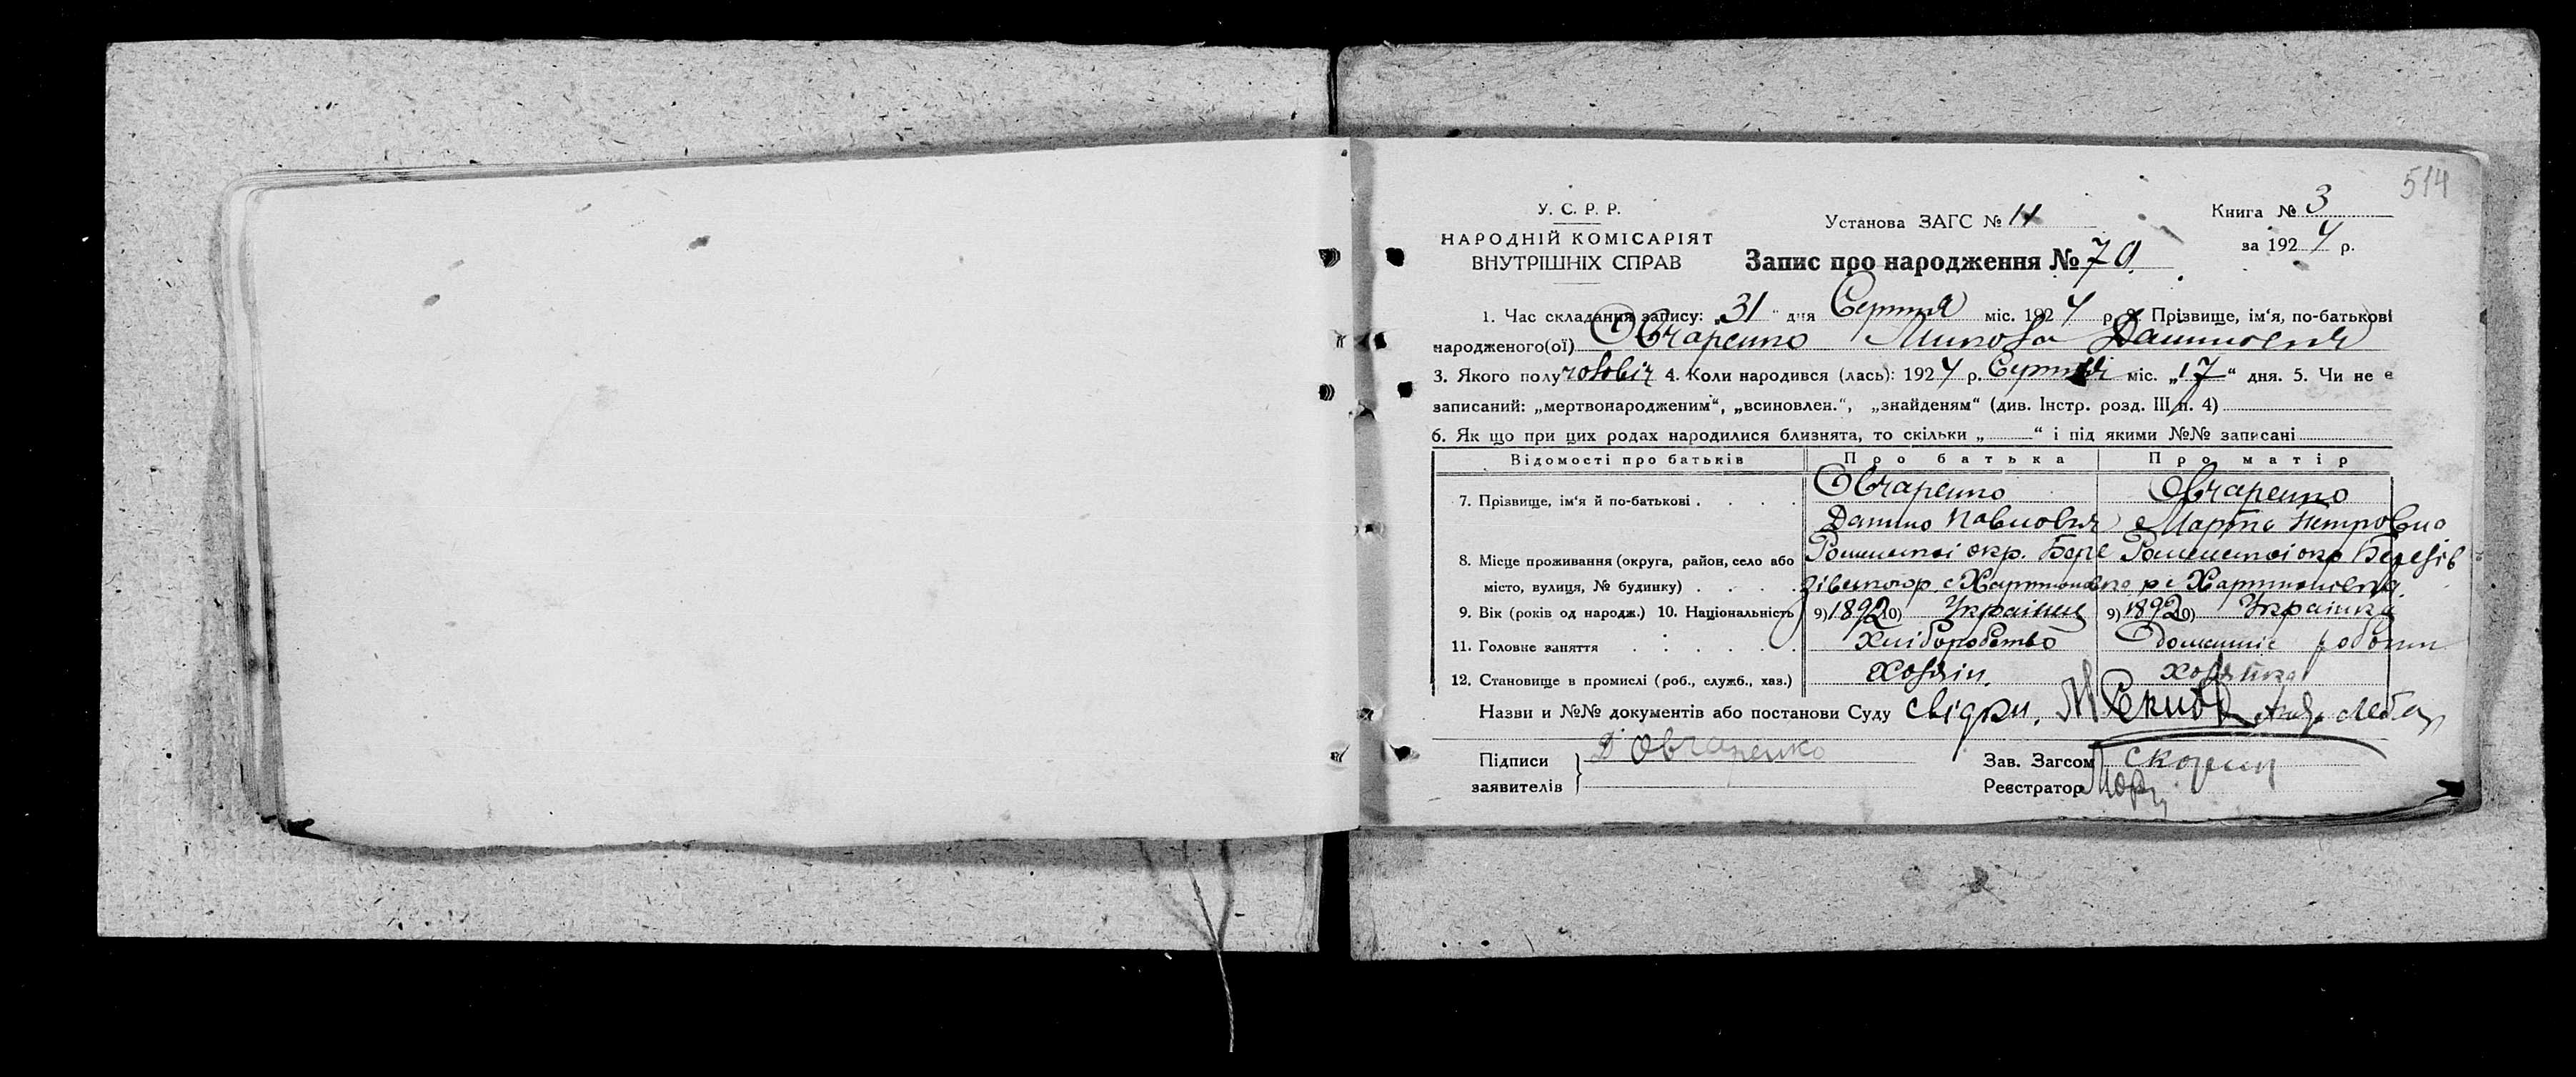 514
У. С. Р. Р.
НАРОДНІЙ КОМІСАРІЯТ
ВНУТРІШНІХ СПРАВ
Установа ЗАГС № 11
Книга № 3
за 1924 р.
Запис про народження № 70.
1. Час складання запису: „31" дня Серпня міс. 1924 р. 2. Прізвище, ім'я, по-батькові
народженого(ої) Овчаренко Микола Данилович
3. Якого полу чоловіч 4. Коли народився (лась): 1924 р. Серпня міс. „17" дня. 5. Чи не є
записаний: „мертвонародженим", „всиновлен.", „знайденям" (див. Інстр. розд. III п. 4)
6. Як що при цих родах народилися близнята, то скільки „ " і під якими №№ записані
Відомості про батьків Про батька Про матір
7. Прізвище, ім'я й по-батькові Овчаренко Овчаренко
Данило Павлович Марта Петровна
8. Місце проживання (округа, район, село або Роменської окр. Бере Роменської окр Березів
місто, вулиця, № будинку) зівськ р. с Хартиновка р с Хартиновка.
9. Вік (років од народж.) 10. Національність 9) 1892 10) Українець 9) 1892 10) Українка
11. Головне заняття Хліборобство Домашнє роботи
12. Становище в промислі (роб., служб., хаз.) Хозяін. Хозяйка
Назви и №№ документів або постанови Суду Свідки.
Підписи
заявителів
Д Овчаренко
Зав. Загсом
Реєстратор